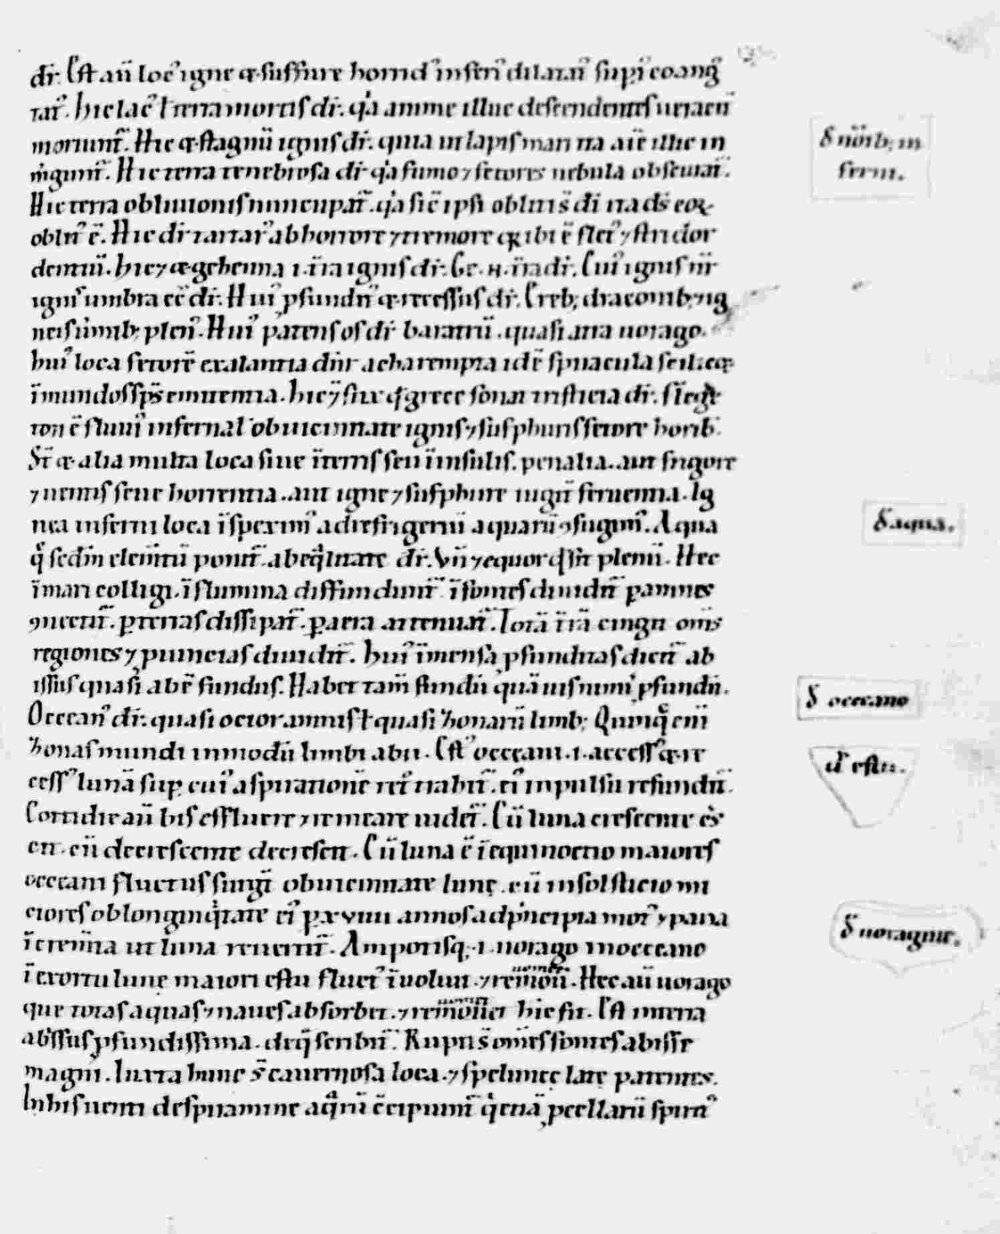 dr̄. Est aū loc᷒ igne ⁊ sulfure horrid᷒ inferi᷒ dilatat᷒ supi᷒ coang᷒
tat᷒. Hic lac᷒ l̄ terra mortis dr̄. q̇a anime illuc descendentes ueracit̄
moriunt᷒. Hic ⁊ stagnū ignis dr̄. quia ut lapis mari ita aīe illic in
m̄gunt᷒. Hic terra tenebrosa dr̄ q̇a fumo ⁊ fetoris nebula obscurat᷒.
Hic terra obliuionis nuncupat᷒. q̇a sic̄ ipsi obliti s̄ di ita ds̄ eoꝝ
oblit᷒ ē. Hic dr̄ tartar᷒ ab horrore ⁊ tremore q̇ ibi ē flet᷒ ⁊ stridor
dentiū. Hic ⁊ gehenna .i. t̄ra ignis dr̄. Ge. n̄. t̄ra dr̄. Cui᷒ ignis nr̄
ignis umbra eē dr̄. Hui᷒ ꝓfundit᷒ ⁊ recessus dr̄. Ereb; draconib; ⁊ ig
neis uermib; plen᷒. Hui᷒ patens os dr̄ baratrū. quasi atra uorago.
hui᷒ loca fetorē exalantia dn̄r acharempta idē spiracula scil; eq̄
īmundos sps̄ emittentia. Hic ⁊ stix q̄ grece sonat tristicia dr̄. flege
ton ē fluui᷒ infernal᷒ ob uicinitate ignis ⁊ sulphuris fetore horib᷒.
St̄ ⁊ alia multa loca siue ī terris seu ī insulis. penalia. aut frigore
⁊ uentis seue horrentia. aut igne ⁊ sulphure iugit̄ feruentia. Ig
nea inferni loca īspexim᷒ ad refrigeriū aquarū ꝯfugim᷒. Aqua
q̇ scd̄m elem̄tū ponit᷒. ab eq̄litate dr̄. Vn̄ ⁊ equor q̄si plenū. Hec
ī mari colligi. ī flumina diffundit᷒. ī fontes diuidit᷒ p amnes
ꝯnectit᷒. p terras dissipat᷒. p aera attenuat᷒. Totā t̄rā cingit om̄s
regiones ⁊ puincias diuidit᷒. Hui᷒ īmensa ꝓfunditas dicit᷒ ab
issus quasi abē fundus. Habet tam̄ fundū quāuis nimi᷒ ꝓfundū.
Occean᷒ dr̄. quasi ocior amnis l̄ quasi zonarū limb; Quinq̇ eni᷒
zonas mundi in modū limbi abit. Est᷒ occeani .i. access᷒ ⁊ re
cess᷒ lunā sup cui᷒ aspiratione retro trahit᷒. ei᷒ inpulsu refundit᷒.
Cottidie aū bis effluere ⁊ remeare uidet᷒. Cū luna crescente cres
cit. cū decrescente decrescit. Cū luna ē ī equinoctio maiores
occeani fluctus surgūt ob uicinitate lune. cū in solsticio mi
nores ob longinq̇tate ei᷒. p xviiii annos ad pncipia mot᷒ ⁊ paria
ī crem̄ta ut luna reuertit᷒. Ampotisq; .i. uorago in occeano
ī exortu lune maiori estu fluct᷒ īuoluit. ⁊ reuomit. Hec aū uorago
que totas aquas ⁊ naues absorbet. ⁊ reuomit hic fit. Est in terra
abissus ꝓfundissima. de q̄ scribit᷒. Rupti s̄ om̄s fontes abissi
magni. Iuxta hunc s̄ cauernosa loca. ⁊ spelunce late patentes.
In his uenti de spiramine aq̇rū c̄cipiunt᷒ q̇ etiā pcellarū spirit᷒
δ nouib; in
ferni.
δ aqua.
δ occeano
δ estu.
δ uoragine.